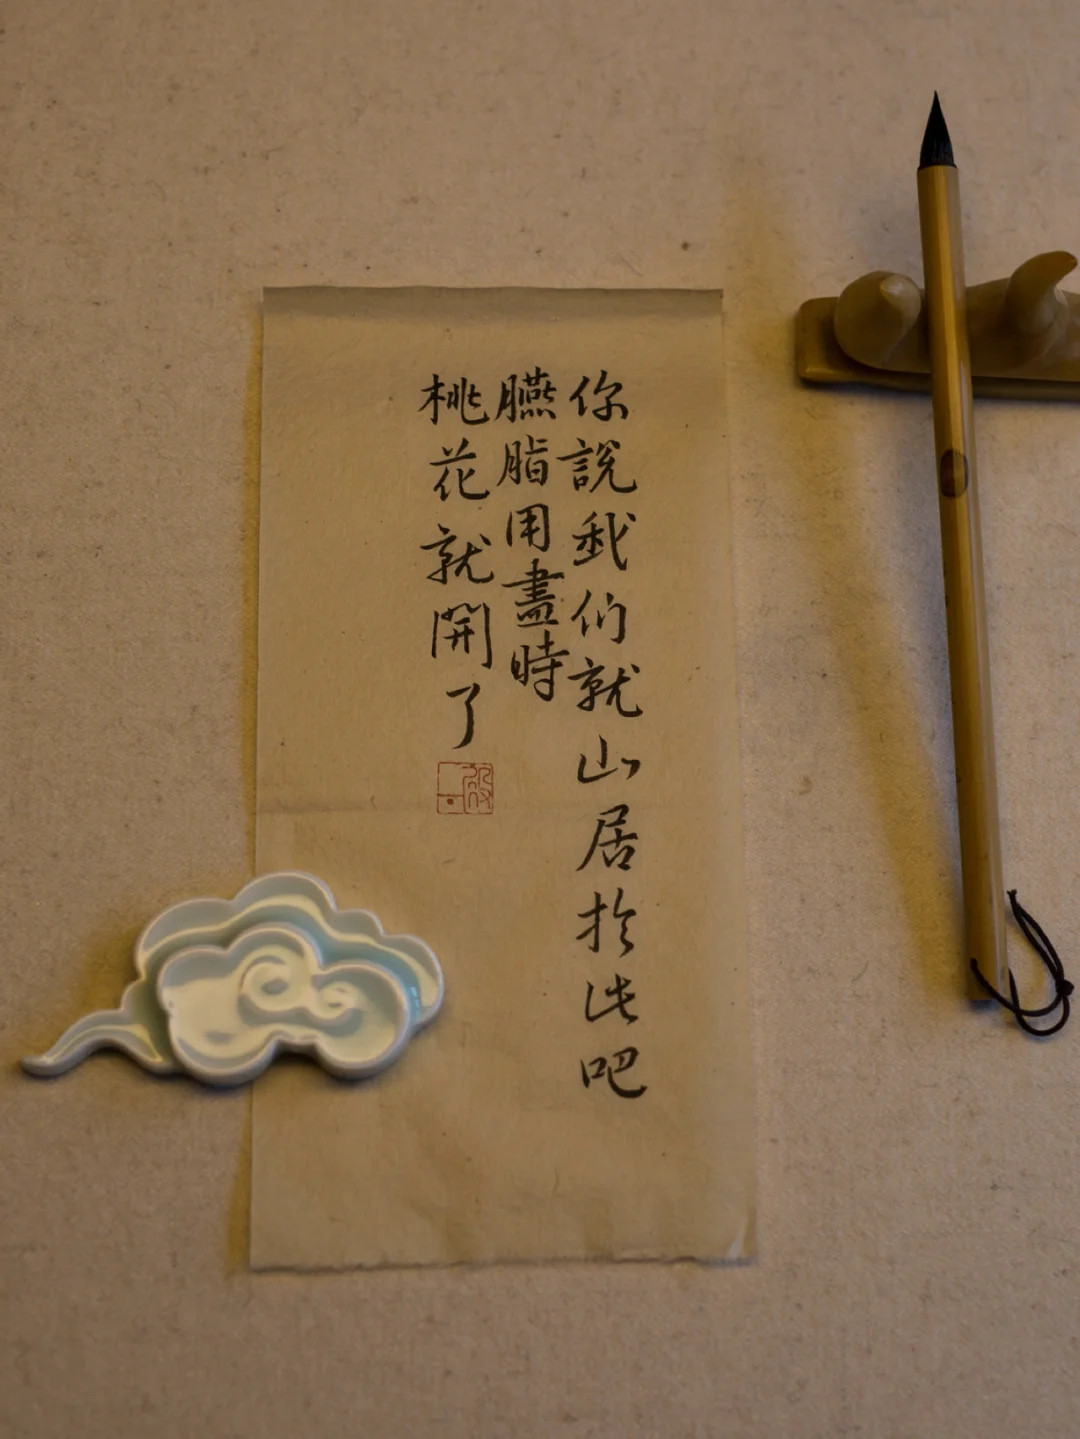 你說我们就山居於此吧
臙脂用盡時
桃花就開了